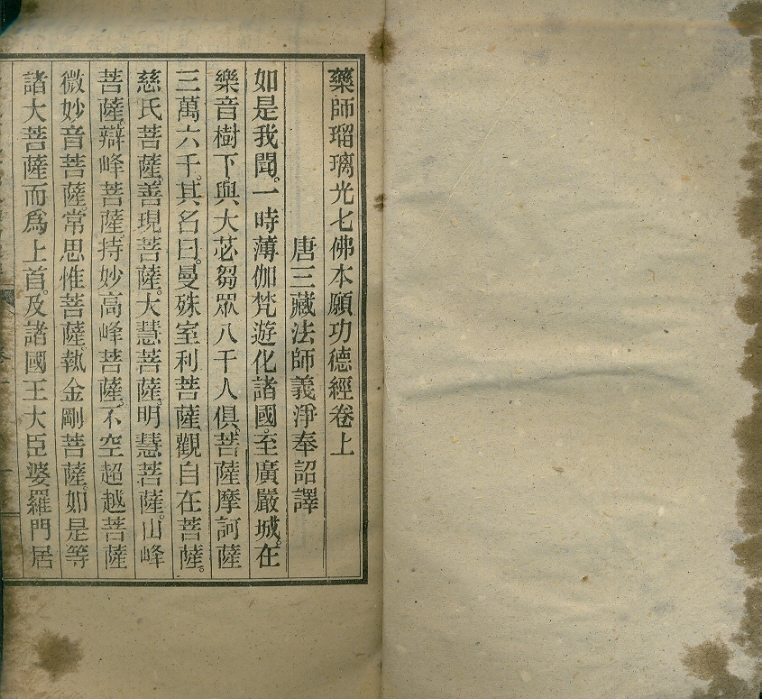 藥師瑠璃光七佛本願功德經卷上
唐三藏法師義淨奉詔譯
如是我聞。一時薄伽梵遊化諸國。至廣嚴城。在
樂音樹下。與大苾芻眾八千人俱。菩薩摩訶薩
三萬六千。其名曰。曼殊室利菩薩觀自在菩薩。
慈氏菩薩。善現菩薩。大慧菩薩。明慧菩薩。山峰
菩薩。辯峰菩薩。持妙高峰菩薩。不空超越菩薩
微妙音菩薩。常思惟菩薩。執金剛菩薩。如是等
諸大菩薩而爲上首。及諸國王大臣婆羅門居